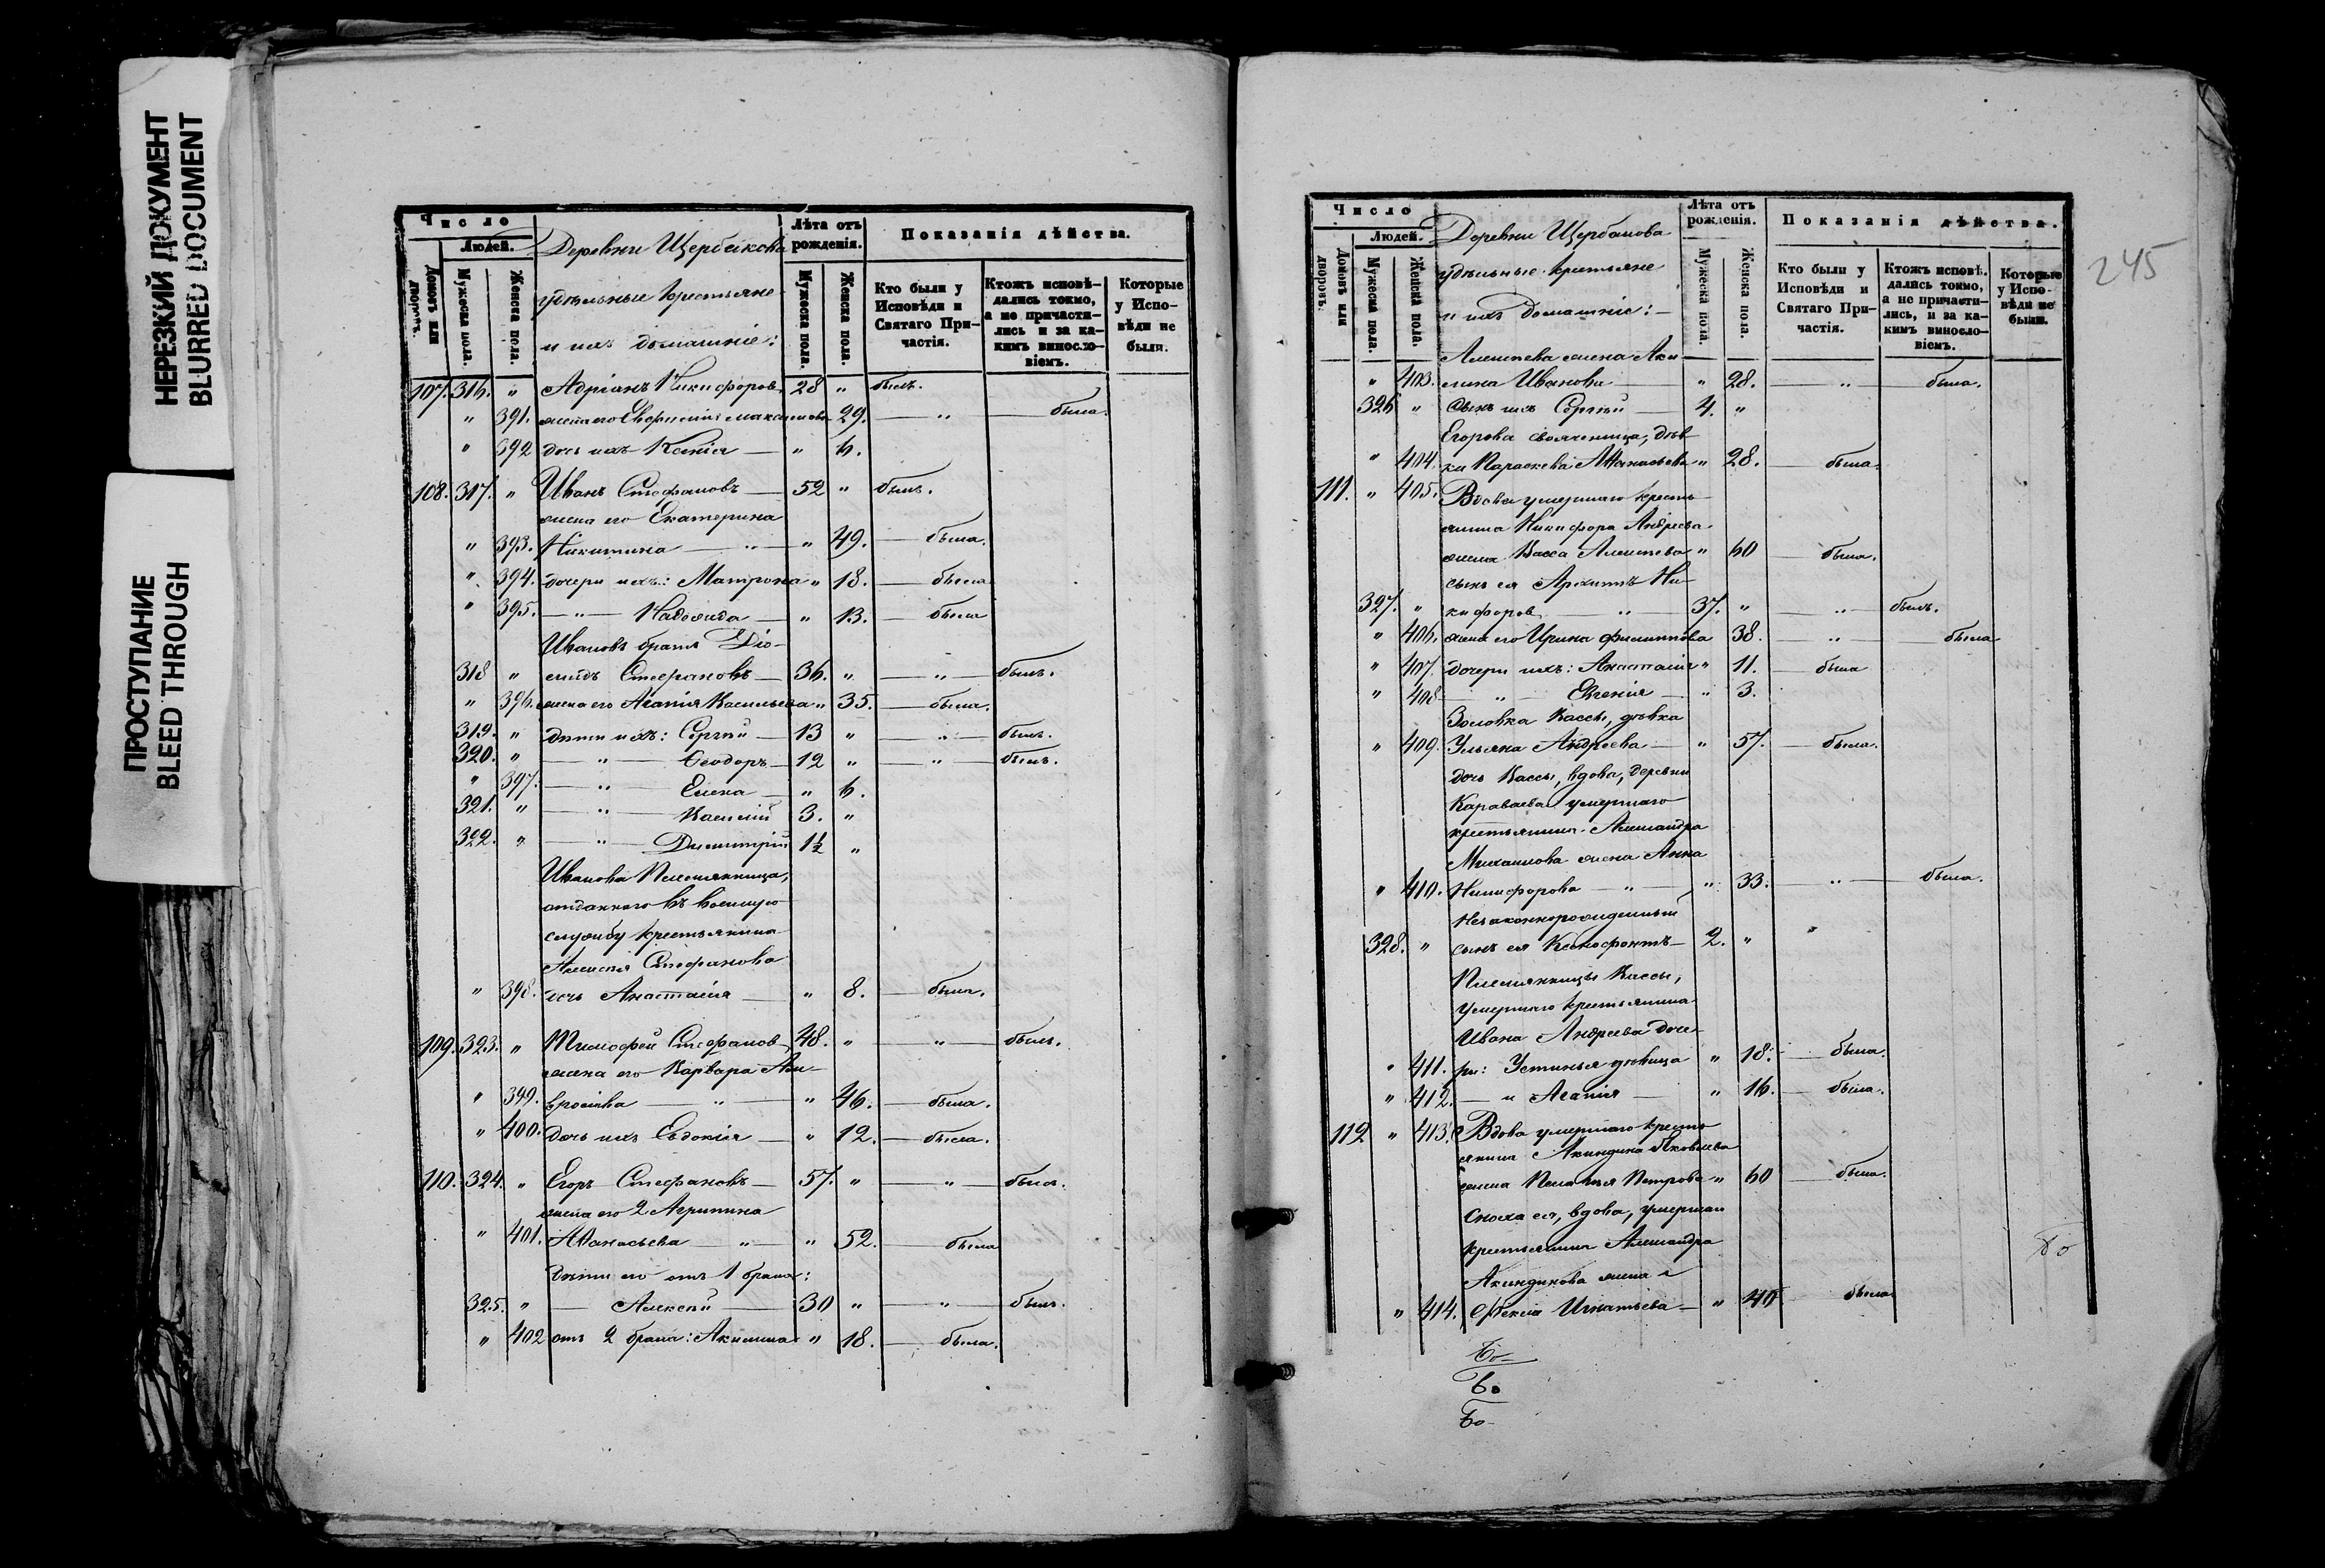 НЕРЕЗКИЙ ДОКУМЕНТ
BLURRED DOCUMENT
ПРОСТУПАНИЕ
BLEED THROUGH
Число
Людей.
Домовъ или дворовъ.
Мужеска пола.
Женска пола.
Деревни Щербакова
удѣльные крестьяне
и ихъ домашніе:
Лѣта отъ рожденія.
Мужеска пола.
Женска пола.
Показанія дѣйства.
Кто были у Исповѣди и Святаго Причастія.
Ктожъ исповѣдались токмо, а не причастились и за какимъ винословіемъ.
Которые у Исповѣди не были.
107. 316. " Адріанъ Никифоров 28 " былъ.
" 391. жена его Евфимія Максимова 29. — " — была.
" 392 дочь ихъ Ксенія — " 6.
108. 317. " Иванъ Стефановъ — 52 " былъ.
жена его Екатерина
" 393. Никитина — " — " 49. — была.
" 394. дочери ихъ: Матрона " 18. — была
" 395. — " — Надежда — " 13. — была
Ивановъ братъ Діо-
318 " мидъ Стефановъ — 36. " — " — былъ.
" 396. жена его Агапія Васильева " 35. — была.
319. " дѣти ихъ: Сергѣй — 13 " — " — былъ.
320. " — " — Ѳеодоръ — 12 " — " — былъ.
" 397. — " — Елена — " 6.
321. " — " — Василій 3. "
322. " — " — Димитрій 1½ "
Иванова племянница,
отданнаго въ военную
службу крестьянина
Алексѣя Стефанова
" 398. дочь Анастасія — " 8. — была.
109. 323. " Тимофей Стефанов 48. " — " — былъ.
жена его Варвара Ам-
" 399. вросіева — " — " 46. — была.
" 400. дочь ихъ Евдокія — " 12. — была.
110. 324. " Егоръ Стефановъ — 57. " — " — былъ.
жена его 2 Агрипина
" 401. Аѳанасьева — " — " 52. — была
дѣти его отъ 1 брака:
325. " — Алексѣй — 30 " — " — былъ.
" 402 отъ 2 брака: Акилина " 18. — была.
245
Число
Людей.
Домовъ или дворовъ.
Мужеска пола.
Женска пола.
Деревни Щербакова
удѣльные крестьяне
и ихъ домашніе: —
Лѣта отъ рожденія.
Мужеска пола.
Женска пола.
Показанія дѣйства.
Кто были у Исповѣди и Святаго Причастія.
Ктожъ исповѣдались токмо, а не причастились, и за какимъ винословіемъ.
Которые у Исповѣди не были.
Алексѣева жена Аки-
" 403. лина Иванова — " 28. — " — была.
326 " сынъ ихъ Сергѣй — 4. "
Егорова свояченица, дѣв-
" 404. ка Параскева Аѳанасьева " 28. — была.
111. " 405. Вдова умершаго кресть-
янина Никифора Андреева
жена Васса Алексѣева " 60 — была.
сынъ ея Архиппъ Ни-
327. " кифоров — " — 37. " — " — былъ.
" 406. жена его Ирина Филиппова 38. — " — была
" 407. дочери ихъ: Анастасія " 11. — была
" 408 — " — Евгенія — " 3.
Золовка Вассы, дѣвка
" 409. Ульяна Андреева — " 57. — была.
дочь Вассы, вдова, деревни
Караваева умершаго
крестьянина Александра
Михаилова жена Анна
" 410. Никифорова — " — " 33. — " — была.
Незаконнорожденный
328. " сынъ ея Ксенофонтъ — 2. "
Племянницы Вассы,
умершаго крестьянина
Ивана Андреева доче-
" 411. ри: Устинья дѣвица " 18. — была.
" 412. — " Агапія — " 16. — была.
112 " 413. Вдова умершаго кресть-
янина Акиндина Яковлева
жена Пелагія Петрова " 60 — была.
Сноха ея, вдова, умершаго
крестьянина Александра
Акиндинова жена
" 414. Ѳекла Игнатьева — " 40 — была